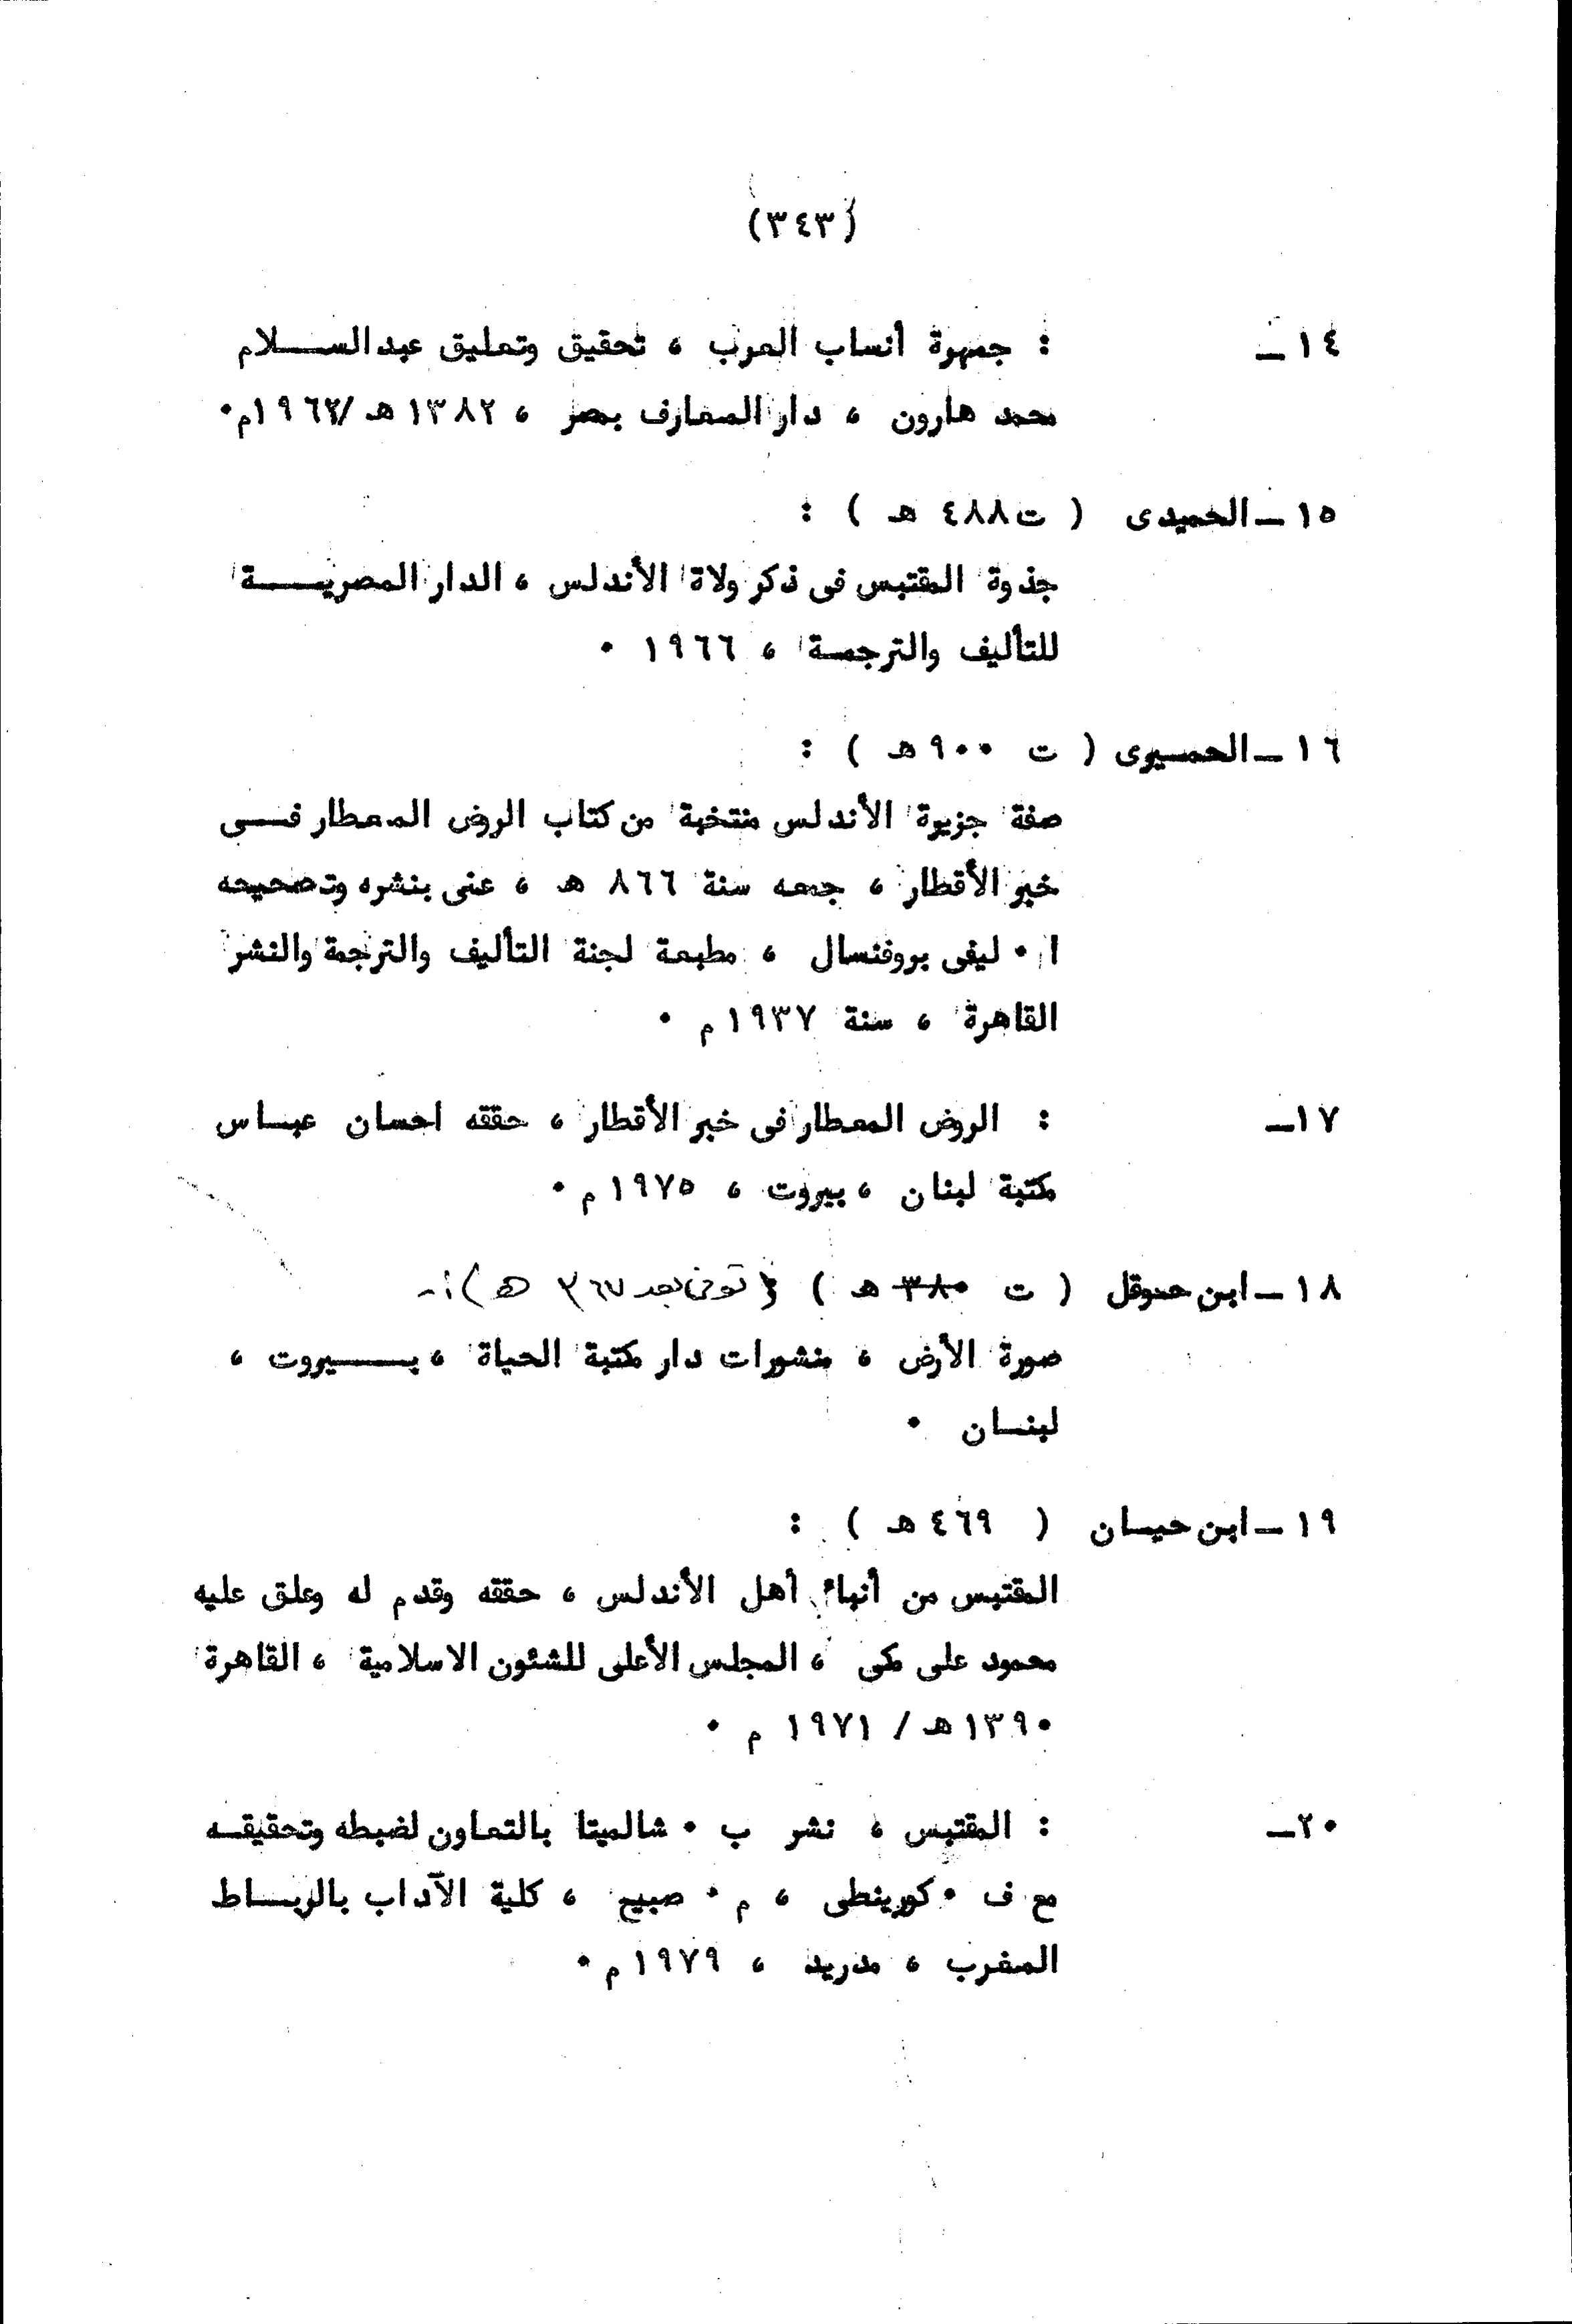 (٣٤٣)
١٤ـ : جمهرة أنساب العرب ، تحقيق وتعليق عبدالسـلام
محمد هارون ، دار المعارف بمصر ، ١٣٨٢ هـ /١٩٦٢م٠
١٥ـ الحميدى ( ت٤٨٨ هـ ) :
جذوة المقتبس فى ذكر ولاة الأندلس ، الدار المصريـــة
للتأليف والترجمة ، ١٩٦٦ ٠
١٦ـ الحميرى ( ت ٩٠٠ هـ ) :
صفة جزيرة الأندلس منتخبة من كتاب الروض المعطار فــى
خبر الأقطار ، جمعه سنة ٨٦٦ هـ ، عنى بنشره وتصحيحه
ا ٠ ليفى بروفنسال ، مطبعة لجنة التأليف والترجمة والنشر
القاهرة ، سنة ١٩٣٧ م ٠
١٧ـ : الروض المعطار فى خبر الأقطار ، حققه احسان عبـاس
مكتبة لبنان ، بيروت ، ١٩٧٥ م ٠
١٨ـ ابن حوقل ( ت ٣٨٠ هـ ) ( توفى بعد ٣٦٧ هـ ) :-
صورة الأرض ، منشورات دار مكتبة الحياة ، بــــيروت ،
لبنـان ٠
١٩ـ ابن حيـان ( ٤٦٩ هـ ) :
المقتبس من أنباء أهل الأندلس ، حققه وقدم له وعلق عليه
محمود على مكى ، المجلس الأعلى للشئون الاسلامية ، القاهرة
١٣٩٠ هـ / ١٩٧١ م ٠
٢٠ـ : المقتبس ، نشر ب ٠ شالميتا بالتعاون لضبطه وتحقيقـه
مع ف ٠ كورينطى ، م ٠ صبيح ، كلية الآداب بالربـاط
المغرب ، مدريد ، ١٩٧٩ م ٠